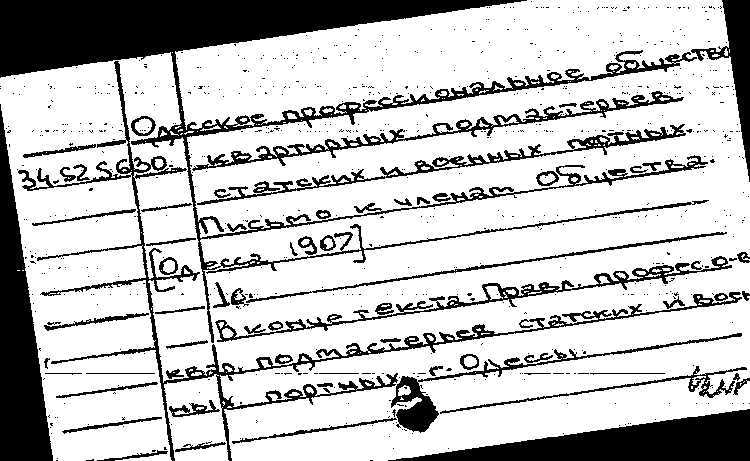 Одесское профессиональное общество
34.S2.5.630. квартирных подмастерьев
статских и военных портных.
Письмо к членам Общества.
[Одесса, 1907]
1 с.
В конце текста: Правл. професс. о-в
квар. подмастерьев статских и воен
ных портных г. Одессы.